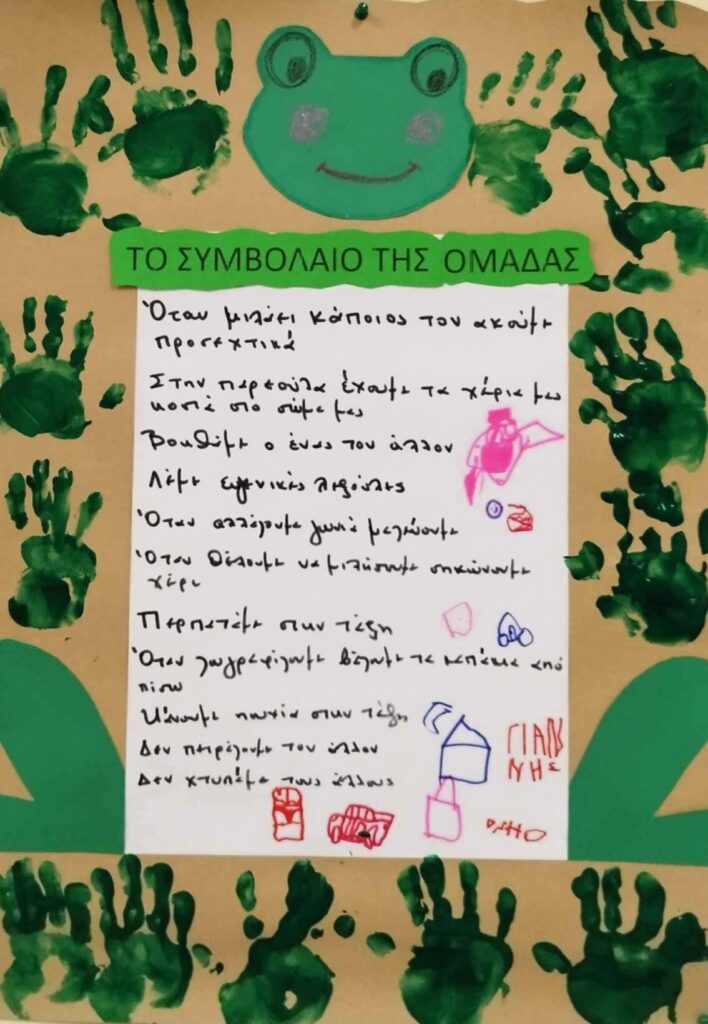 ΤΟ ΣΥΜΒΟΛΑΙΟ ΤΗΣ ΟΜΑΔΑΣ
Όταν μιλάει κάποιος τον ακούμε
προσεχτικά
Στην παρεούλα έχουμε τα χέρια μας
κοντά στο σώμα μας
Βοηθάμε ο ένας τον άλλον
Λέμε ευγενικές λεξούλες
Όταν αλλάζουμε γωνιά μαζεύουμε
Όταν θέλουμε να μιλήσουμε σηκώνουμε
χέρι
Περπατάμε στην τάξη
Όταν ζωγραφίζουμε βάζουμε τα καπάκια από
πίσω
Κάνουμε ησυχία στην τάξη
Δεν πειράζουμε τον άλλον
Δεν χτυπάμε τους άλλους
ΓΙΑΝ
ΝΗΣ